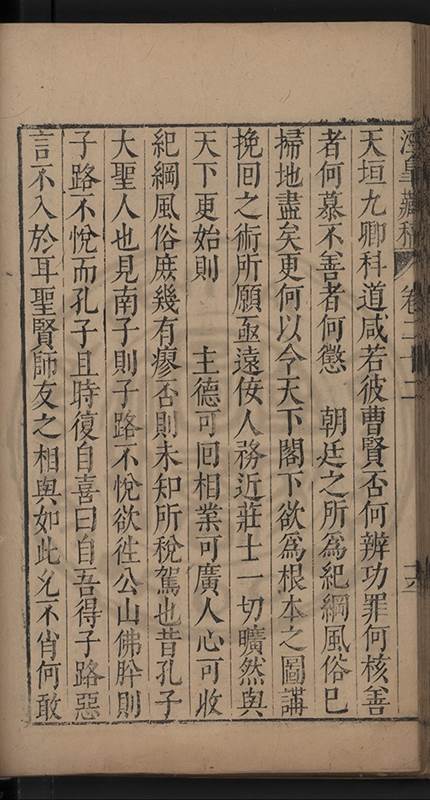 涇皐藏稿 卷二十二 六
天垣九卿科道咸若彼曹賢否何辨功罪何核善
者何慕不善者何懲　朝廷之所為紀綱風俗巳
掃地盡矣更何以令天下閣下欲為根本之圖講
挽回之術所願亟遠佞人務近莊士一切曠然與
天下更始則　主德可回相業可廣人心可收
紀綱風俗庶幾有瘳否則未知所稅駕也昔孔子
大聖人也見南子則子路不悅欲徃公山佛肸則
子路不悅而孔子且時復自喜曰自吾得子路惡
言不入於耳聖賢師友之相與如此允不肖何敢